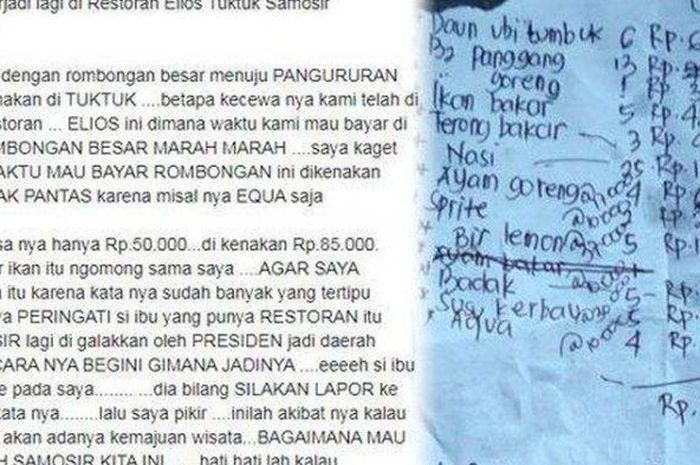 rjadi lagi di Restoran Elios Tuktuk Samosir
dengan rombongan besar menuju PANGURURAN
nakan di TUKTUK ....betapa kecewa nya kami telah di
storan ... ELIOS ini dimana waktu kami mau bayar di
MBONGAN BESAR MARAH MARAH ....saya kaget
VAKTU MAU BAYAR ROMBONGAN ini dikenakan
AK PANTAS karena misal nya EQUA saja
sa nya hanya Rp.50.000...di kenakan Rp.85.000.
r ikan itu ngomong sama saya ....AGAR SAYA
a itu karena kata nya sudah banyak yang tertipu
ya PERINGATI si ibu yang punya RESTORAN itu
SIR lagi di galakkan oleh PRESIDEN jadi daerah
CARA NYA BEGINI GIMANA JADINYA ....eeeeh si ibu
e pada saya........ ...dia bilang SILAKAN LAPOR ke
kata nya........lalu saya pikir ....inilah akibat nya kalau
akan adanya kemajuan wisata,..BAGAIMANA MAU
H SAMOSIR KITA INI ..... hati hati lah kalau
Daun ubi tumbuk 6 Rp.
B2 panggang 13 Rp.
goreng 1 Rp.
Ikan bakar 5 Rp. 4
Terong bakar 3 Rp.
Nasi 25 Rp. 1
Ayam goreng 4 Rp.
Sprite Rp.
Bir lemon 5 Rp.
Ayam bakar
Badak 5 Rp.
Susu kerbau 5 Rp.
Aqua 4 Rp.
Rp.